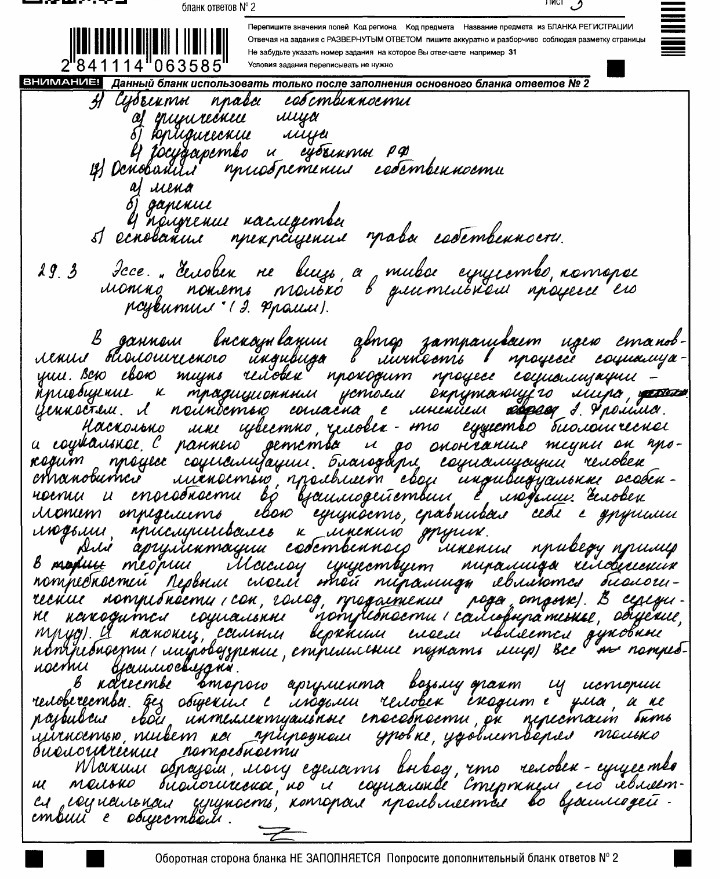 бланк ответов № 2
Лист 3
Перепишите значения полей Код региона Код предмета Название предмета из БЛАНКА РЕГИСТРАЦИИ
Отвечая на задания с РАЗВЕРНУТЫМ ОТВЕТОМ пишите аккуратно и разборчиво соблюдая разметку страницы
Не забудьте указать номер задания на которое Вы отвечаете например 31
Условия задания переписывать не нужно
2 841114 063585
ВНИМАНИЕ! Данный бланк использовать только после заполнения основного бланка ответов № 2
3) Субъекты права собственности
а) физические лица
б) юридические лица
в) государство и субъекты РФ
4) Основания приобретения собственности
а) мена
б) дарение
в) получение наследства
5) основания прекращения права собственности.
29.3 Эссе. „Человек не вещь, а живое существо, которое
можно понять только в длительном процессе его
развития" (Э. Фромм).
В данном высказывании автор затрагивает идею станов-
ления биологического индивида в личность в процессе социализа-
ции. Всю свою жизнь человек проходит процесс социализации –
приобщение к традиционным устоям окружающего мира,
ценностям. Я полностью согласна с мнением Э. Фромма.
Насколько мне известно, человек - это существо биологическое
и социальное. С раннего детства и до окончания жизни он про-
ходит процесс социализации. Благодаря социализации человек
становится личностью, проявляет свои индивидуальные особен-
ности и способности во взаимодействии с людьми. Человек
может определить свою сущность, сравнивая себя с другими
людьми, прислушиваясь к мнению других.
Для аргументации собственного мнения приведу пример
В теории Маслоу существует пирамида человеческих
потребностей Первым слоем этой пирамиды являются биологи-
ческие потребности (сон, голод, продолжение рода, отдых). В середи-
не находится социальные потребности (самовыражение, общение,
труд). И наконец, самым верхним слоем является духовные
потребности (мировоззрение, стремление познать мир) Все потреб-
ности взаимосвязаны.
В качестве второго аргумента возьму факт из истории
человечества. Без общения с людьми человек сходит с ума, а не
развивая свои интеллектуальные способности, он перестает быть
личностью, живет на природном уровне, удовлетворяя только
биологические потребности
Таким образом, могу сделать вывод, что человек - существо
не только биологическое, но и социальное Стержнем его являет-
ся социальная сущность, которая проявляется во взаимодей-
ствии с обществом.
Оборотная сторона бланка НЕ ЗАПОЛНЯЕТСЯ Попросите дополнительный бланк ответов № 2